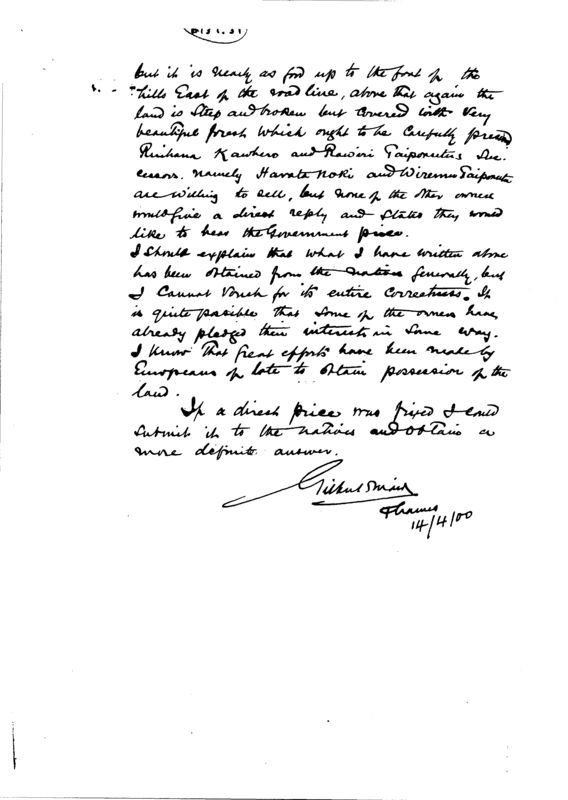 but it is nearly as good up to the foot of the
hills East of the road line, above that again the
land is steep and broken but covered with very
beautiful forest which ought to be carefully
Rihana Kawhero and Rawiri Taiporutu's Suc-
cessors. namely Harata Noki and Wiremu Taiporutu
are willing to sell, but none of the other owners
would give a direct reply and states they would
like to hear the Government price.
I should explain that what I have written above
has been obtained from the natives generally, but
I cannot vouch for its entire correctness. It
is quite possible that some of the owners have
already pledged their interests in some way.
I know that great efforts have been made by
Europeans of late to obtain possession of the
land.
If a direct price was fixed I could
submit it to the natives and obtain a
more definite answer.
Gilbert Mair
Thames
14/4/00